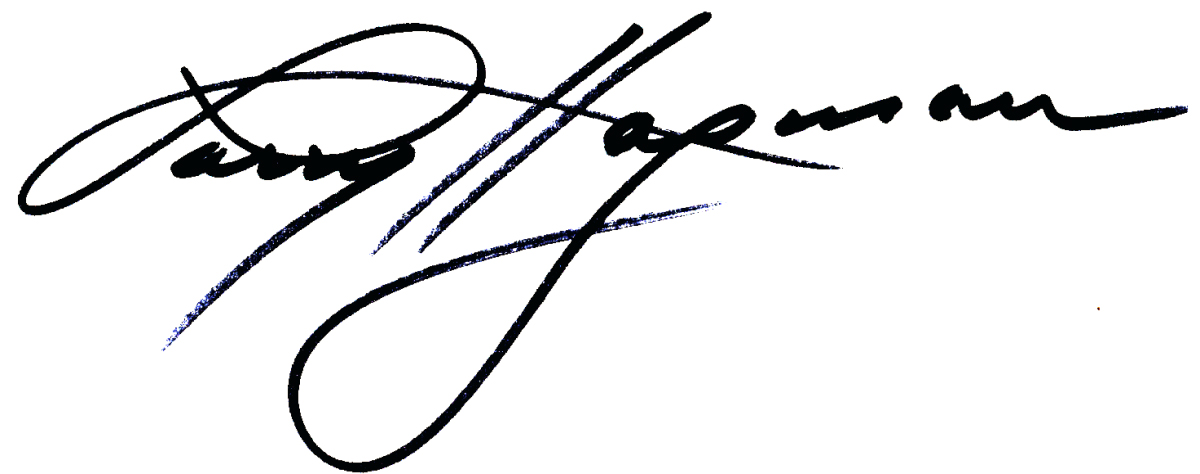 Larry Hagman